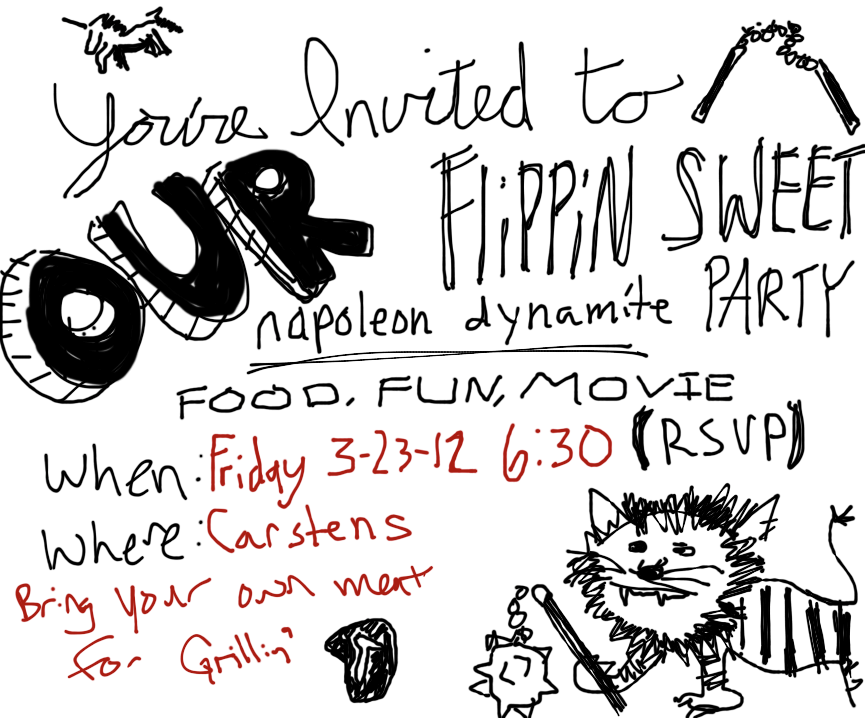 You're Invited to
OUR FLiPPiN SWEET
napoleon dynamite PARTY
FOOD, FUN, MOVIE
When: Friday 3-23-12 6:30 (RSVP)
Where: Carstens
Bring your own meat
for Grillin'